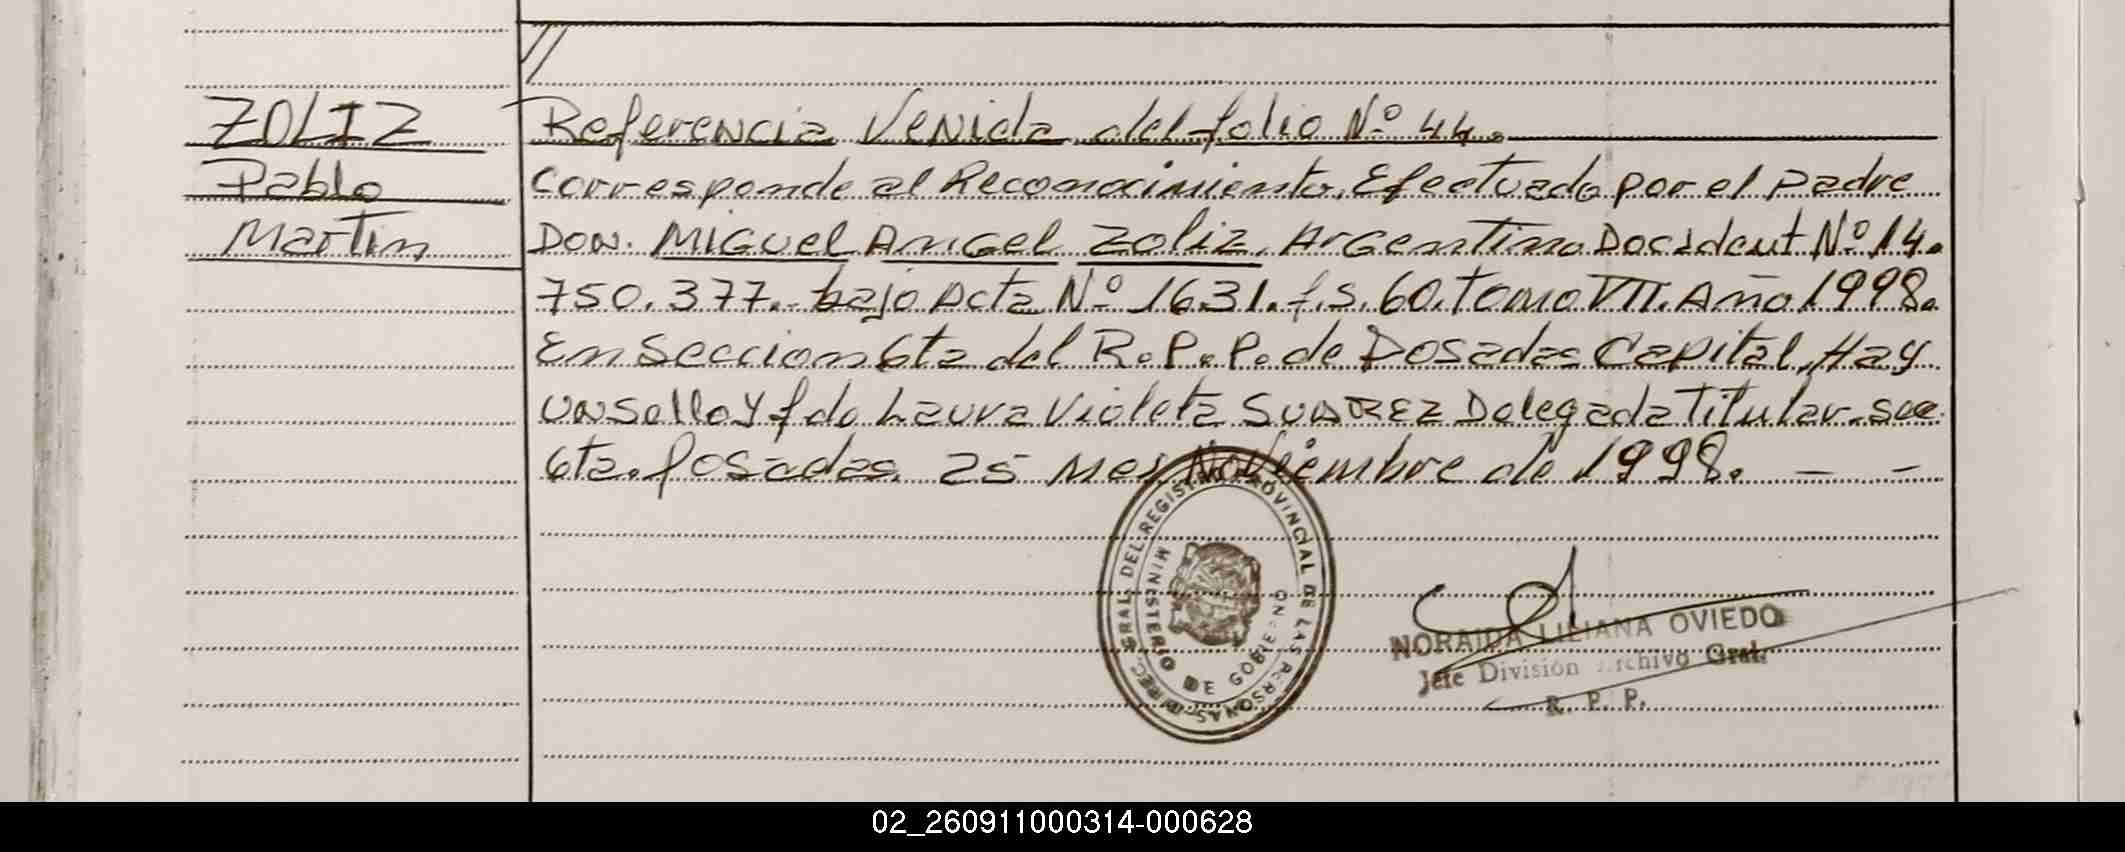 //
ZOLIZ
Pablo
Martin
Referencia Venida del folio Nº 44.
Corresponde al Reconocimiento, Efectuado por el padre
Don. Miguel Angel Zoliz, Argentino Doc ident Nº 14.
750.377. bajo Acta Nº 1631. f.s. 60. tomo VII. Año 1998.
En Seccion 6ta del R.P.P. de Posadas Capital, Hay
un sello y fdo Laura Violeta SUAREZ Delegada Titular. sec
6ta. Posadas, 25 Mes Noviembre de 1998. — —
DIREC. GRAL. DEL REGISTRO PROVINCIAL DE LAS PERSONAS
MINISTERIO DE GOBIERNO
NORAIDA LILIANA OVIEDO
Jefe División Archivo Gral.
R. P. P.
02_260911000314-000628